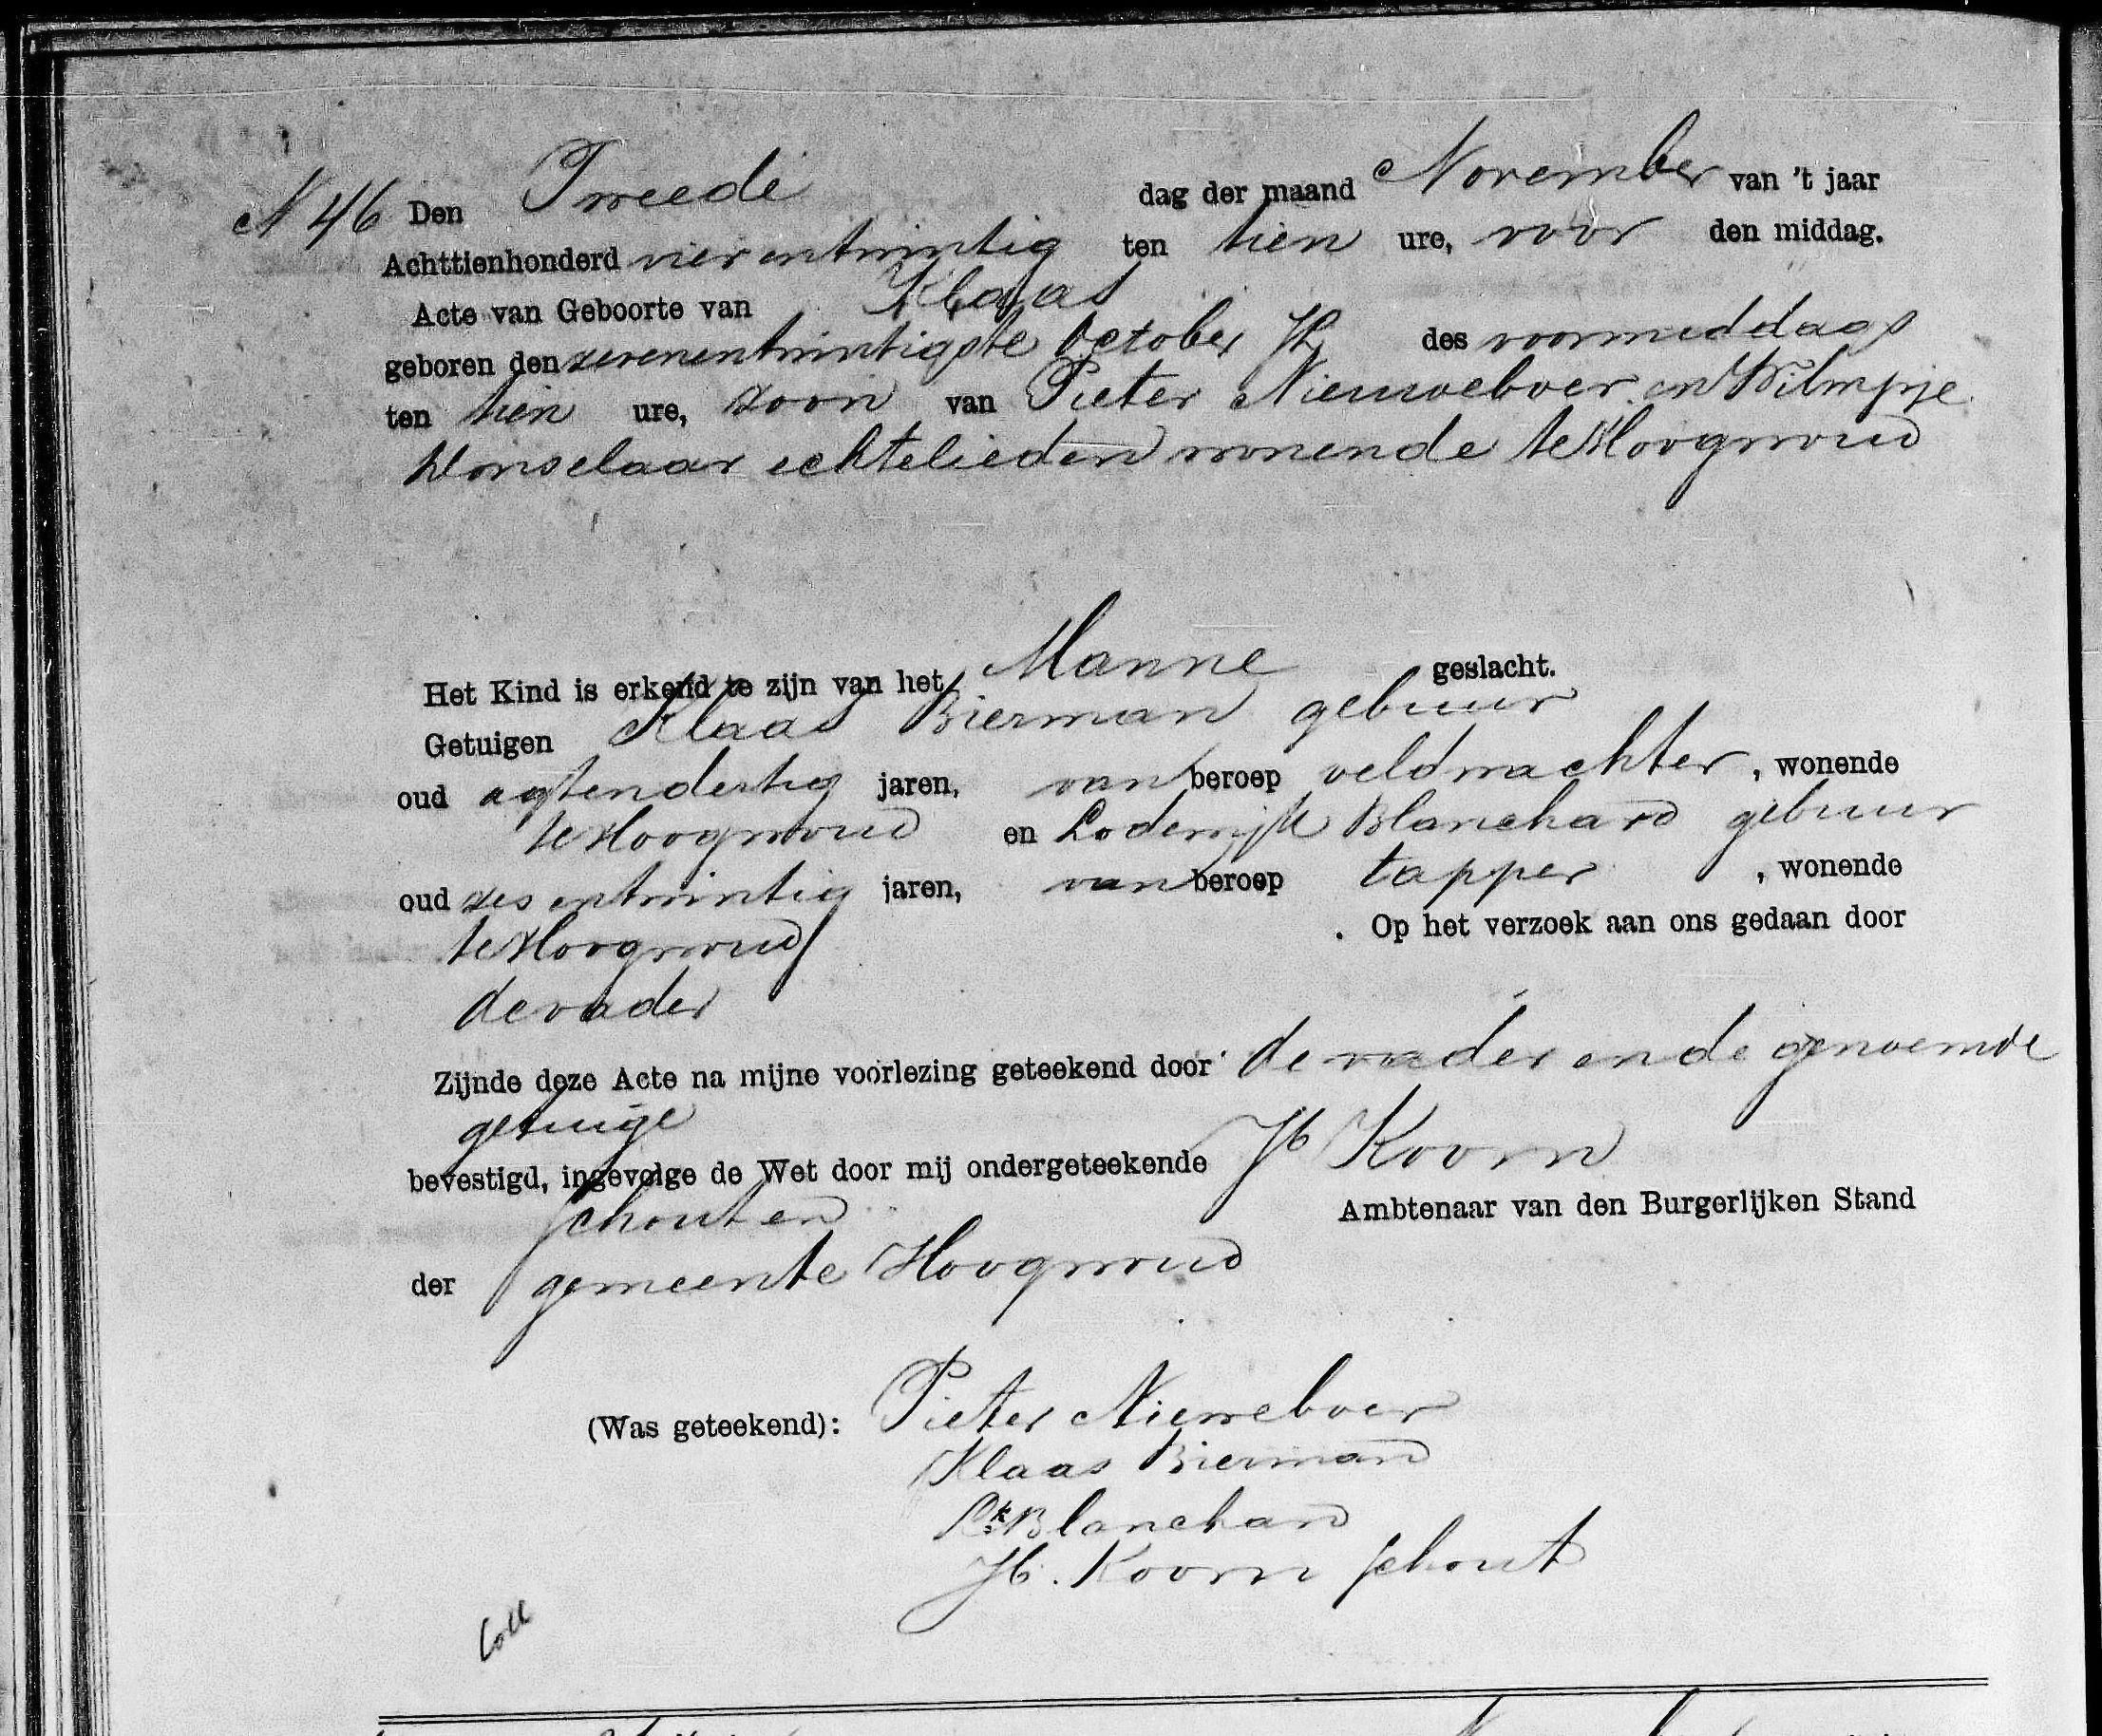 N 46 Den Tweede dag der maand November van 't jaar
Achttienhonderd vier en twintig ten tien ure, voor den middag.
Acte van Geboorte van Klaas
geboren den zevenentwintigste October Jl des voormiddags
ten tien ure, zoon van Pieter Nieuweboer en Wilmpje
Wonselaar echtelieden wonende te Hoogwoud
Het Kind is erkend te zijn van het Manne geslacht.
Getuigen Klaas Bierman gebuur
oud agtendertig jaren, van beroep veldwachter, wonende
te Hoogwoud en Lodewijk Blanchard gebuur
oud zes entwintig jaren, van beroep tapper, wonende
te Hoogwoud . Op het verzoek aan ons gedaan door
de vader
Zijnde deze Acte na mijne voorlezing geteekend door de vader en de genoemde
getuige
bevestigd, ingevolge de Wet door mij ondergeteekende Jb Koorn
schout en Ambtenaar van den Burgerlijken Stand
der gemeente Hoogwoud
(Was geteekend): Pieter Nieweboer
Klaas Bierman
Blanchard
Jb. Koorn schout
Coll